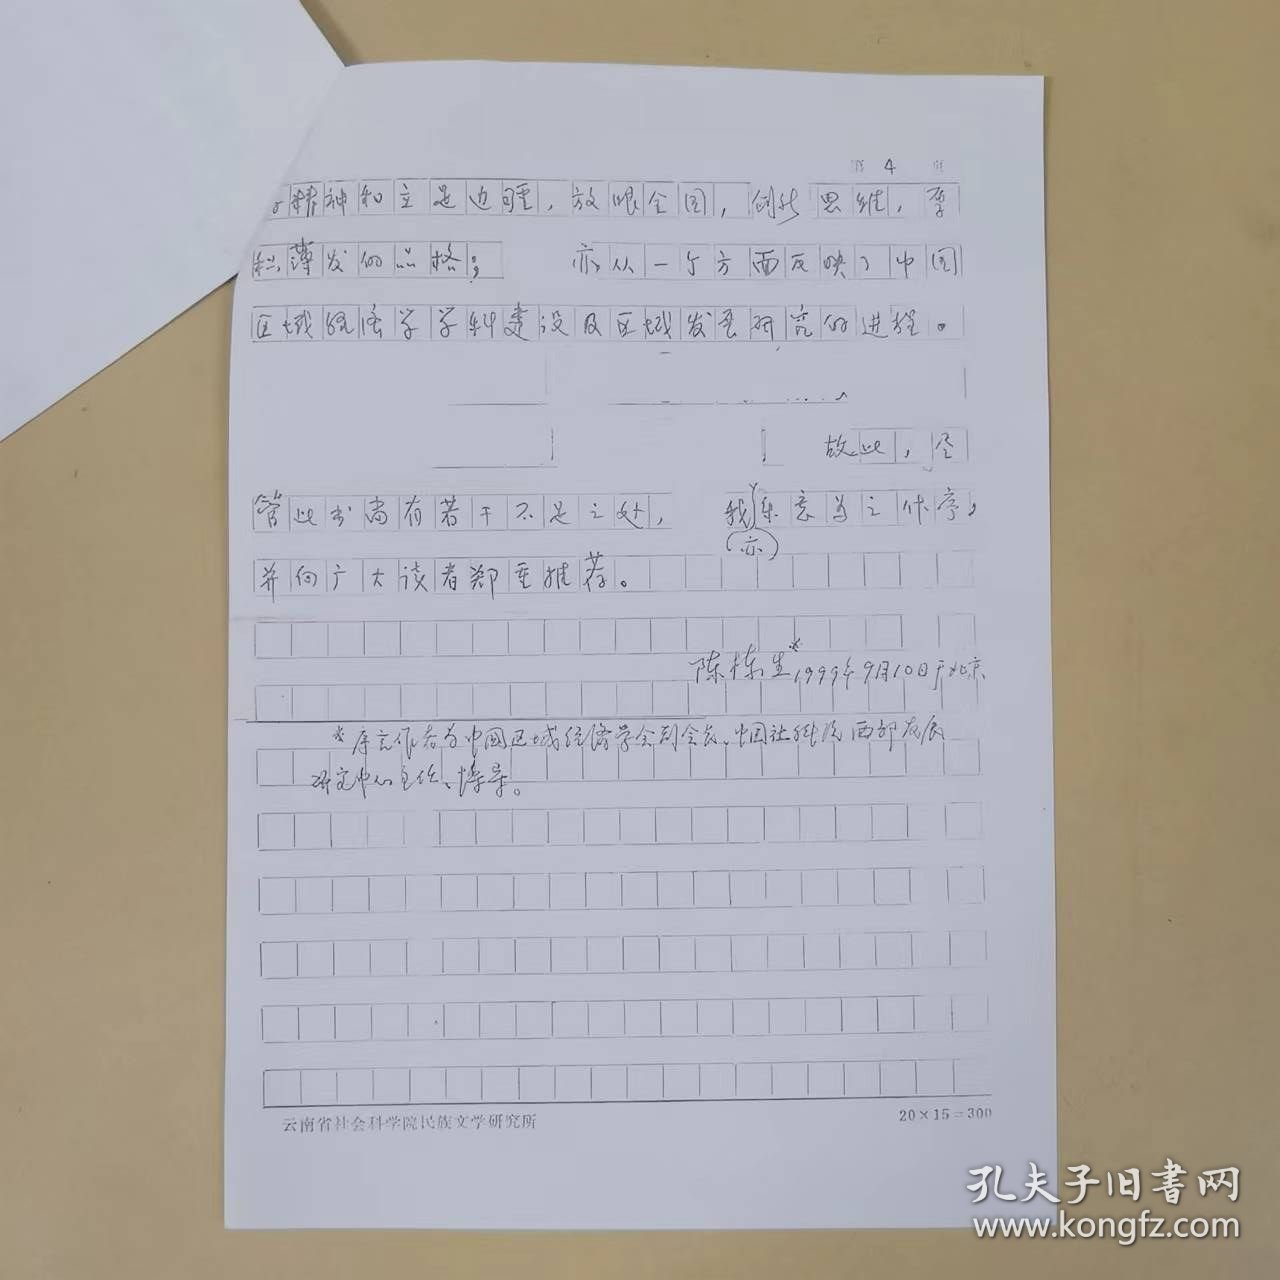 第 4 页
精神和立足边疆，放眼全国，创新思维，厚
积薄发的品格； 亦从一个方面反映了中国
区域经济学学科建设及区域发展研究的进程。
故此，尽
管此书尚有若干不足之处， 我乐意为之作序，
(亦)
并向广大读者郑重推荐。
陈栋生* 1999年9月10日于北京
*序言作者为中国区域经济学会副会长、中国社科院西部发展
研究中心主任、博导。
云南省社会科学院民族文学研究所
20×15=300
孔夫子旧書网
www.kongfz.com